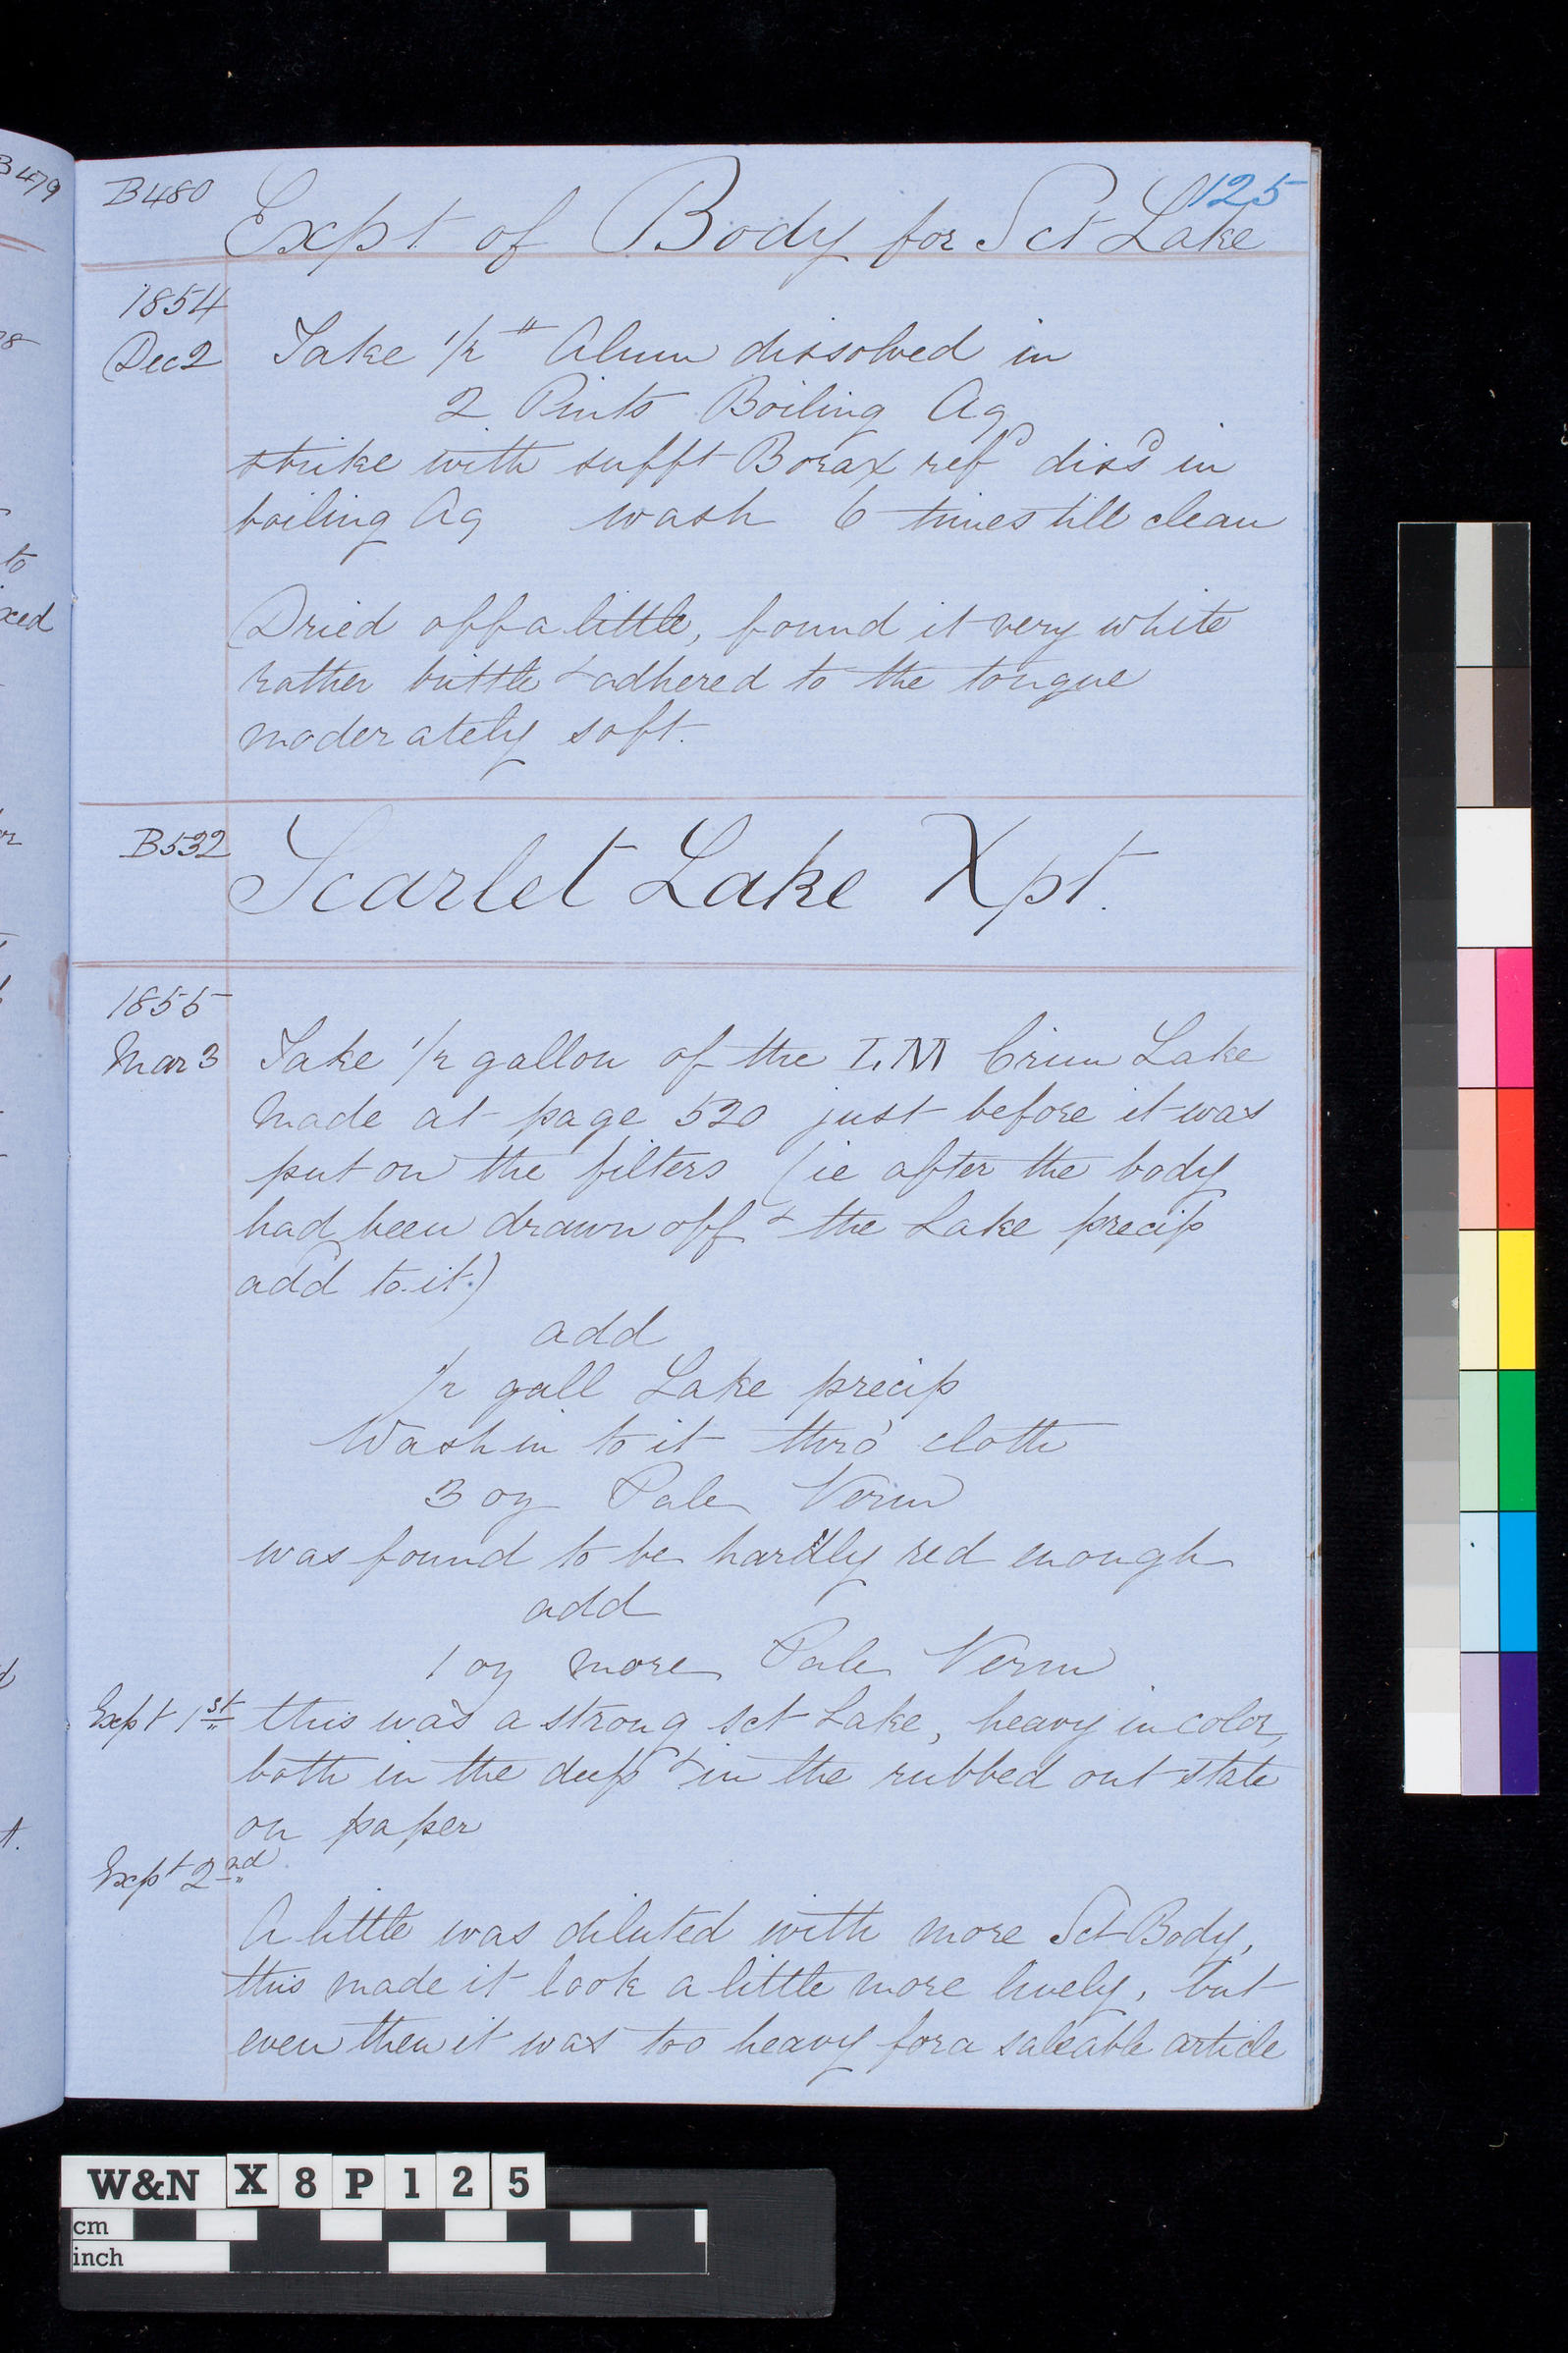 B479
B480
125
Expt of Body for Sct Lake
1854
Dec 2 Take 1/2 " Alum dissolved in
2 Pints Boiling Aq
strike with sufft Borax refd dissd in
boiling Aq wash 6 times till clean
Dried off a little, found it very white
rather brittle & adhered to the tongue
moderately soft.
B532
Scarlet Lake Xpt.
1855
Mar 3 Take 1/2 gallon of the Crim Lake
Made at page 520 just before it was
put on the filters (ie after the body
had been drawn off & the Lake precip
add to it.)
add
1/2 gall Lake precip
Wash in to it thro' cloth
3 oz Pale Verm
was found to be hardly red enough
add
1 oz more Pale Verm
Expt 1st this was a strong sct Lake, heavy in color,
both in the deep & in the rubbed out state
on paper
Expt 2nd
A little was diluted with more Sct Body,
this made it look a little more lively, but
even then it was too heavy for a saleable article
to
xed
W&N X 8 P 1 2 5
cm
inch